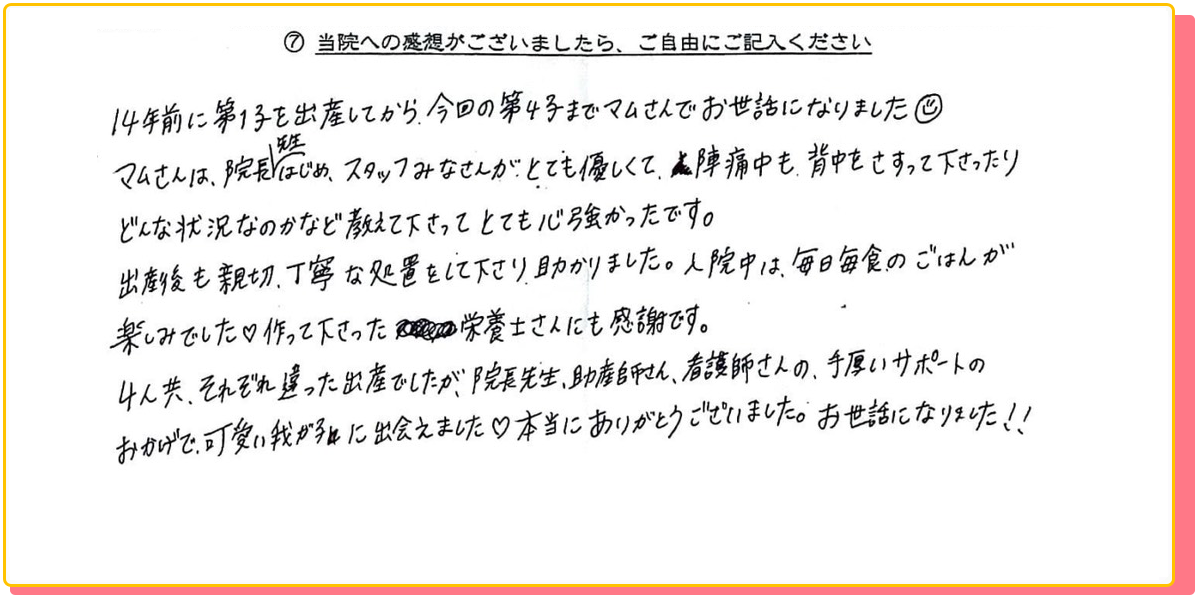 ⑦ 当院への感想がございましたら、ご自由にご記入ください
14年前に第1子を出産してから、今回の第4子までマムさんでお世話になりました☺
マムさんは、院長先生はじめ、スタッフみなさんがとても優しくて、陣痛中も、背中をさすって下さったり
どんな状況なのかなど教えて下さってとても心強かったです。
出産後も親切、丁寧な処置をして下さり、助かりました。入院中は、毎日毎食のごはんが
楽しみでした♡作って下さった栄養士さんにも感謝です。
4人共、それぞれ違った出産でしたが、院長先生、助産師さん、看護師さんの、手厚いサポートの
おかげで、可愛い我が子に出会えました♡本当にありがとうございました。お世話になりました！！